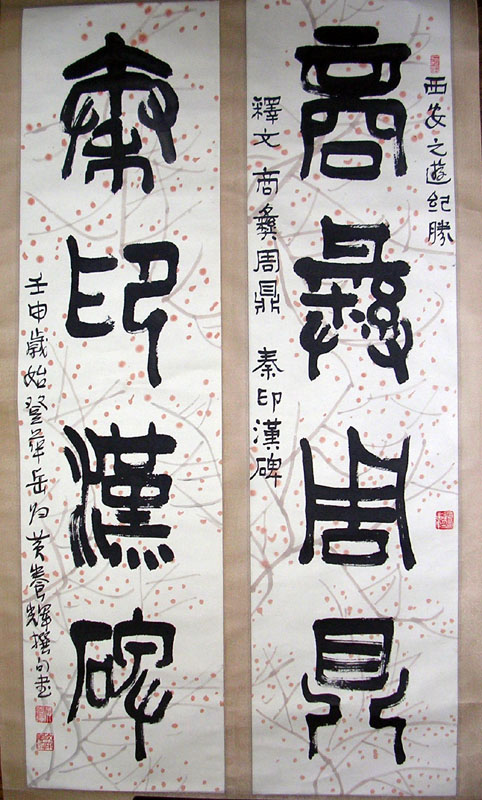 西安之遊紀勝
商彝周鼎
釋文 商彝周鼎 秦印漢碑
秦印漢碑
壬申歲始登華岳归黄養輝撰句並書